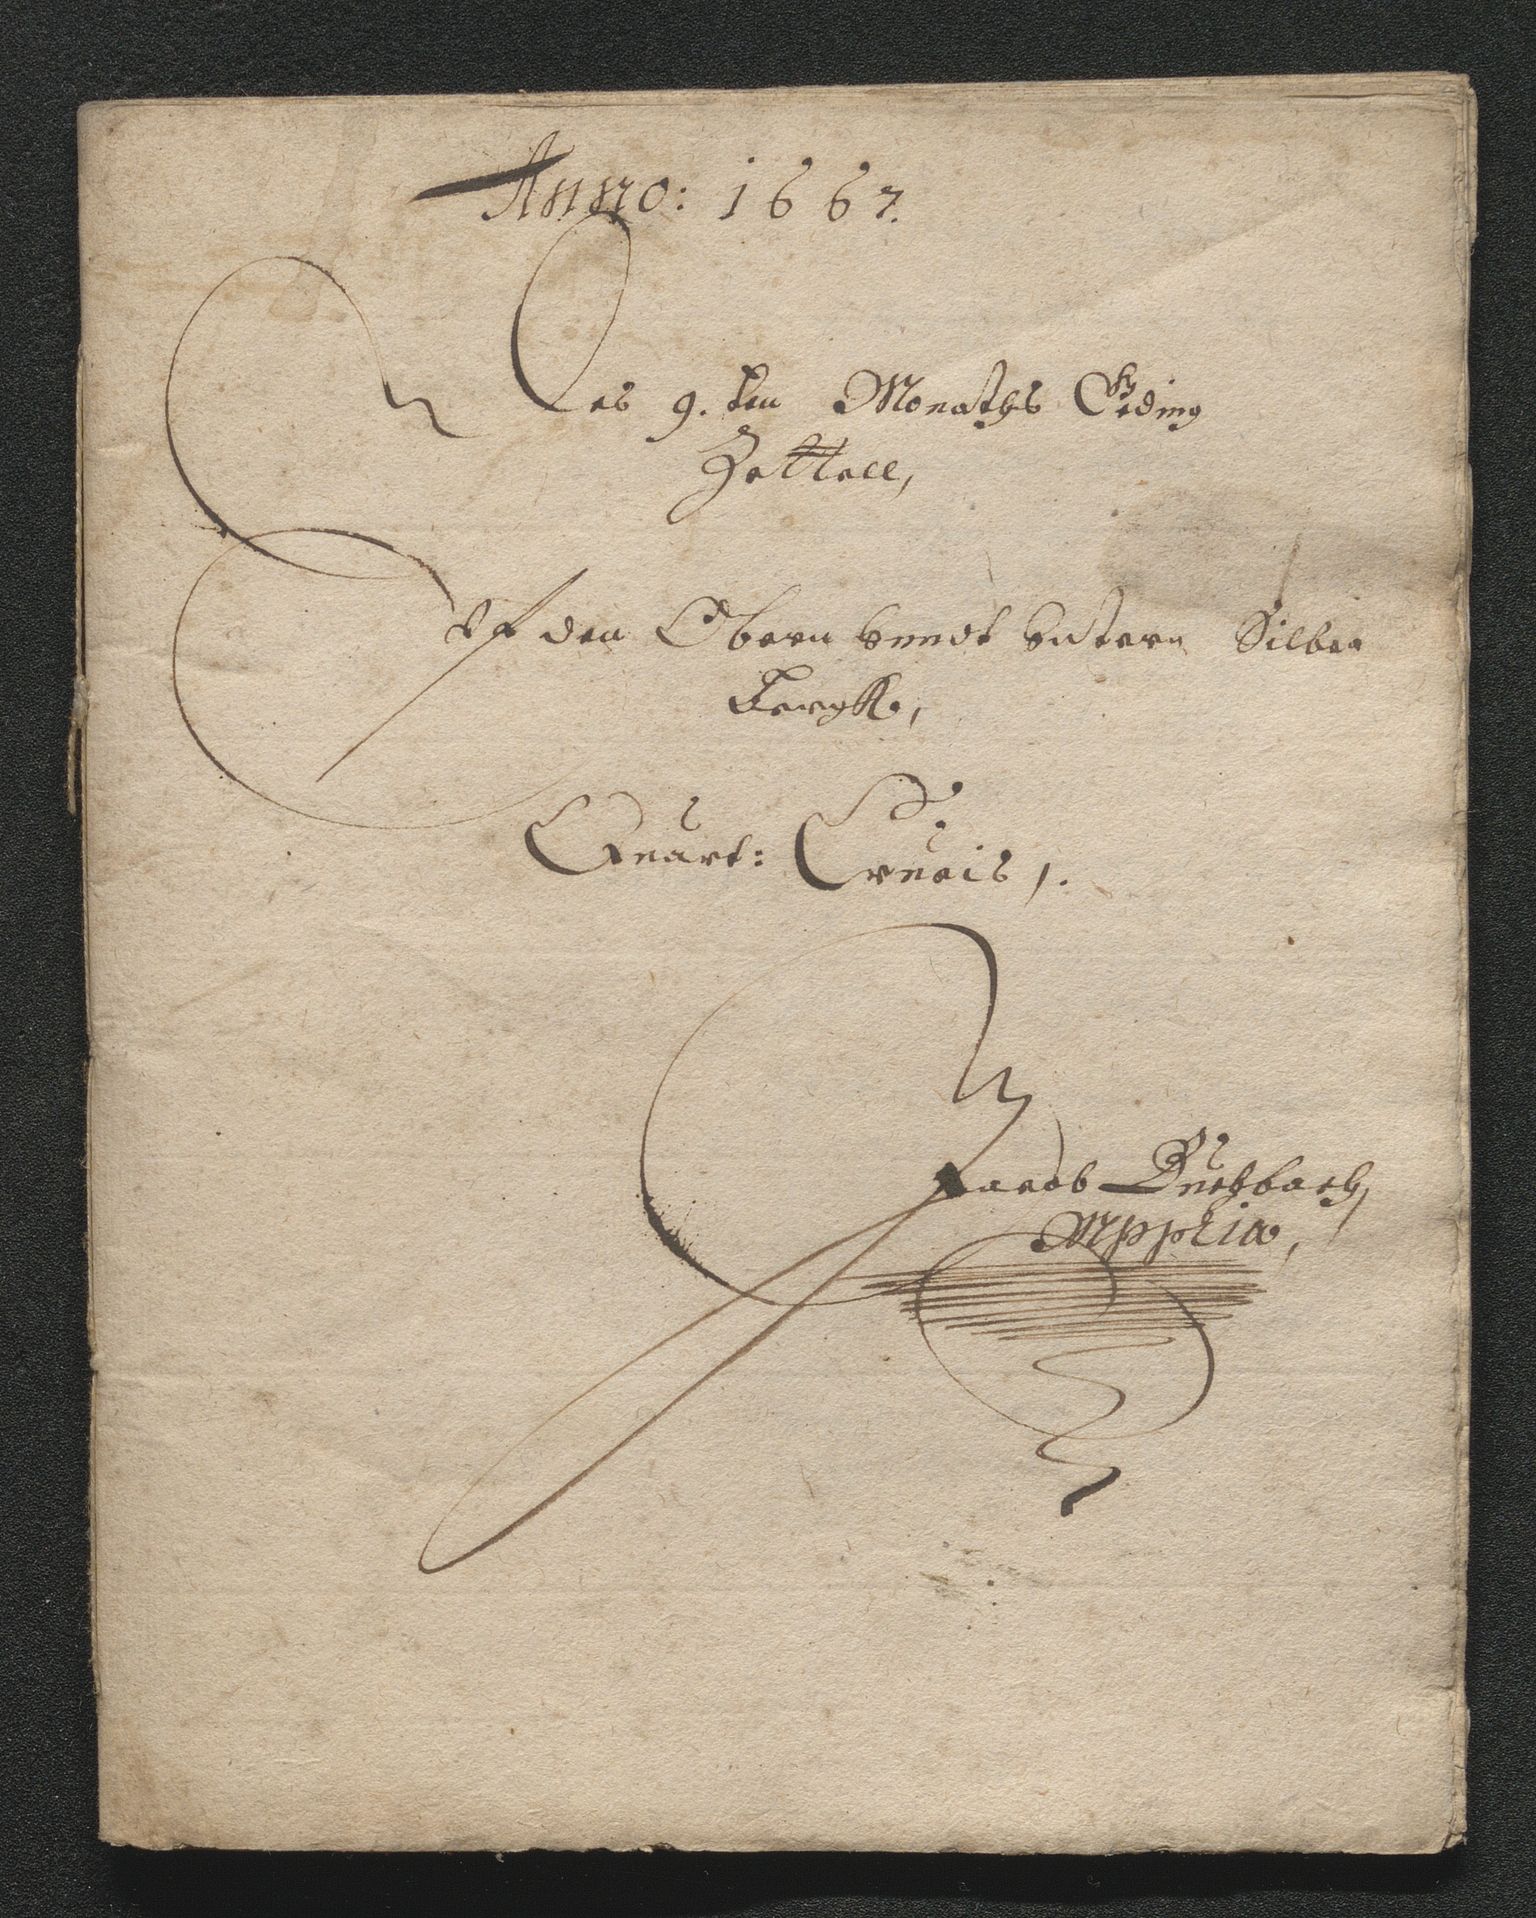 Anno: 1667.
Des 9. ten Monaths Geding
Zettell,
Vf den Obern vnndt Vntern Silber
bergk,
Quart: Crucis 1.
Jacob Buchbach
Mppria,